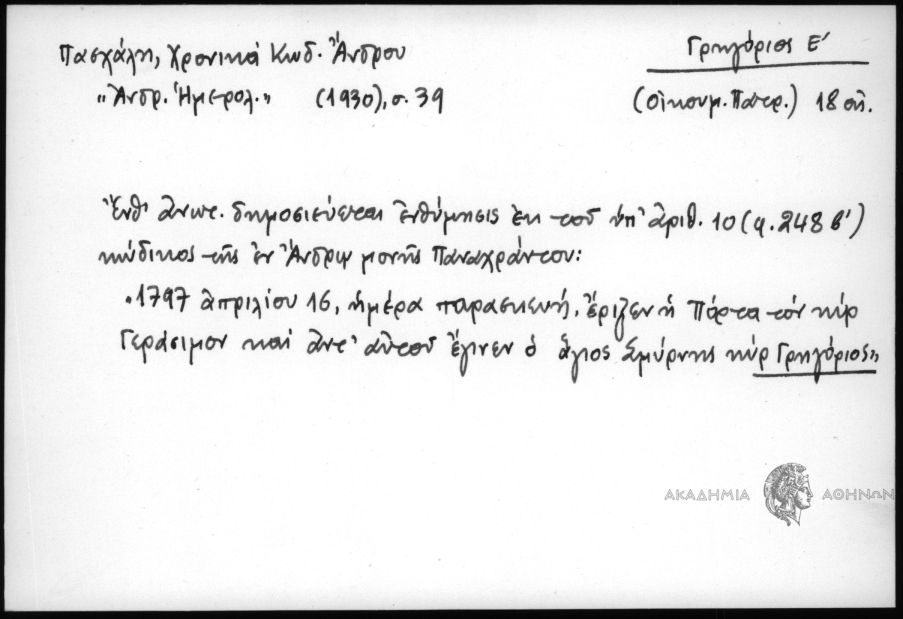 Πασχάλη, Χρονικά Κωδ. Ἄνδρου
Γρηγόριος Ε'
"Ἀνδρ. Ἡμερολ." (1930), σ. 39
(Οἰκουμ. Πατρ.) 18 αἰ.
Ἔνθ' ἀνωτ. δημοσιεύεται ἐνθύμησις ἐκ τοῦ ὑπ' ἀριθ. 10 (φ. 248 β')
κώδικος τῆς ἐν Ἄνδρῳ μονῆς Παναχράντου:
"1797 ἀπριλίου 16, ἡμέρα παρασκευή, ἔριξεν ἡ Πόρτα τόν κύρ
Γεράσιμον καί ἀντ' αὐτοῦ ἔγινεν ὁ ἅγιος Σμύρνης κύρ Γρηγόριος"
ΑΚΑΔΗΜΙΑ ΑΘΗΝΩΝ